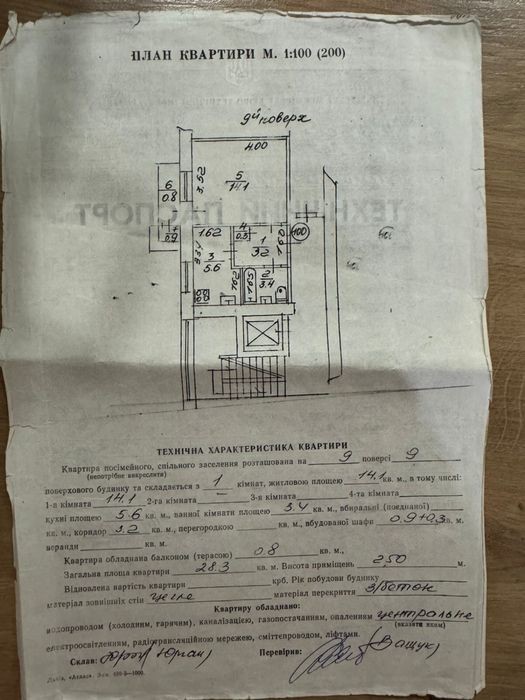 ПЛАН КВАРТИРИ М. 1:100 (200)
9й поверх
4.00
3.52
5
14.1
6
0.8
0.9
1.62
4
0.3
1
3.2
100
3
5.6
2
3.4
1.62
1.65
ТЕХНІЧНА ХАРАКТЕРИСТИКА КВАРТИРИ
Квартира посімейного, спільного заселення розташована на 9 поверсі 9
(непотрібне викреслити)
поверхового будинку та складається з 1 кімнат, житловою площею 14.1 кв. м., в тому числі:
1-а кімната 14.1 2-га кімната 3-я кімната 4-та кімната
кухні площею 5.6 кв. м., ванної кімнати площею 3.4 кв. м., вбиральні (поєднаної)
кв. м., коридор 3.2 кв. м., перегородкою кв. м., вбудованої шафи 0.9+0.3 кв. м.
веранди кв. м.
Квартира обладнана балконом (терасою) 0.8 кв. м.,
Загальна площа квартири 28.3 кв. м. Висота приміщень 250 м.
Відновлена вартість квартири крб. Рік побудови будинку
матеріал зовнішніх стін цегла матеріал перекриття з/бетон
Квартиру обладнано:
водопроводом (холодним, гарячим), каналізацією, газопостачанням, опаленням центральне
(вказати яким)
електроосвітленням, радіотрансляційною мережею, сміттєпроводом, ліфтами.
Склав: Перевірив: (Ващук)
Львів, «Атлас». Зам.